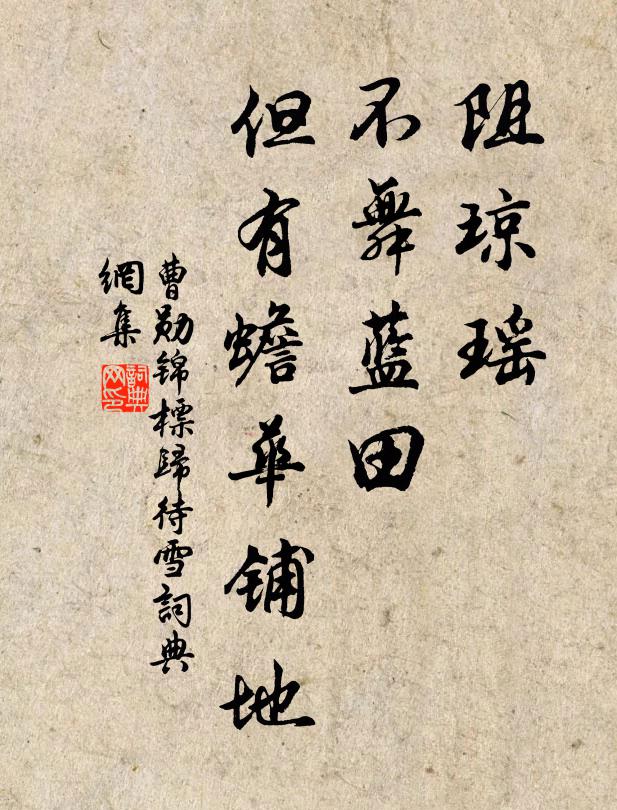 阻琼瑶
不舞蓝田
但有蟾华铺地
曹勋锦標歸待雪詞典
網集
詞典
网印